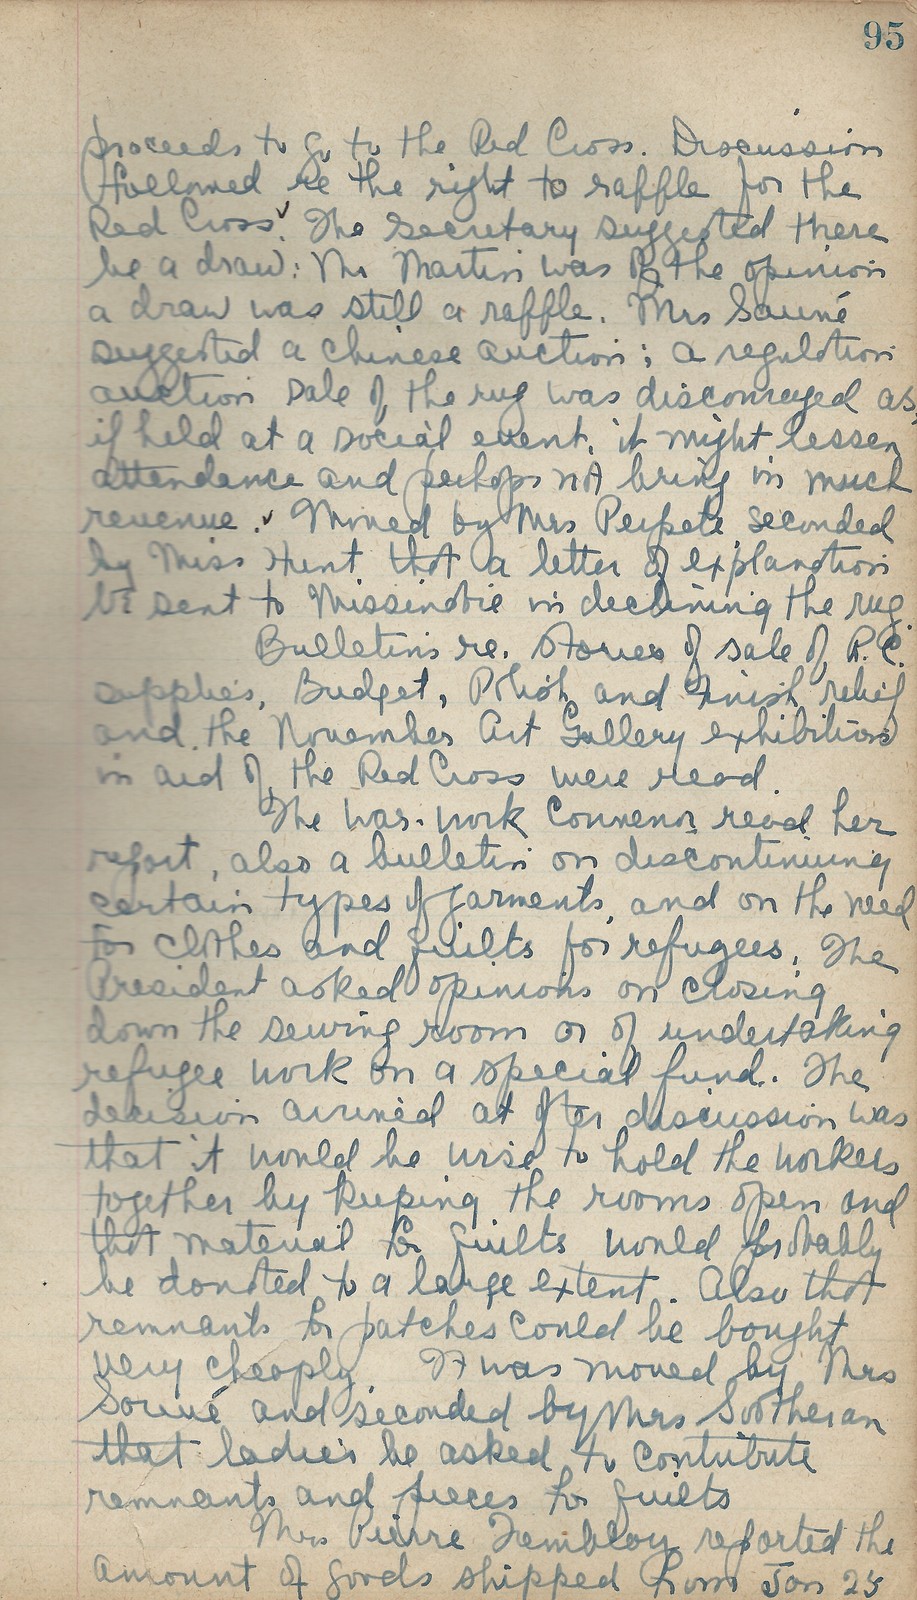 95
proceeds to go to the Red Cross. Discussion
followed re the right to raffle for the
Red Cross. The secretary suggested there
be a draw: Mr Martin was of the opinion
a draw was still a raffle. Mrs Sauné
suggested a chinese auction; a regulation
auction sale of the rug was discouraged as,
if held at a social event, it might lessen
attendance and perhaps not bring in much
revenue. Moved by Mrs Perpete seconded
by Miss Hunt that a letter of explanation
be sent to Missinabie in declining the rug.
Bulletins re. stories of sale of R.C.
supplies, Budget, Polish and Finish relief
and the November Art Gallery exhibition
in aid of the Red Cross were read.
The war-work Convenor read her
report, also a bulletin on discontinuing
certain types of garments, and on the need
for clothes and quilts for refugees. The
President asked opinions on closing
down the sewing room or of undertaking
refugee work on a special fund. The
decision arrived at after discussion was
that it would be wise to hold the workers
together by keeping the rooms open and
that material for quilts would probably
be donated to a large extent. Also that
remnants for patches could be bought
very cheaply. It was moved by Mrs
and seconded by Mrs Sootheran
that ladies be asked to contribute
remnants and pieces for quilts
Mrs Pierre Tremblay reported the
amount of goods shipped from Jan 25